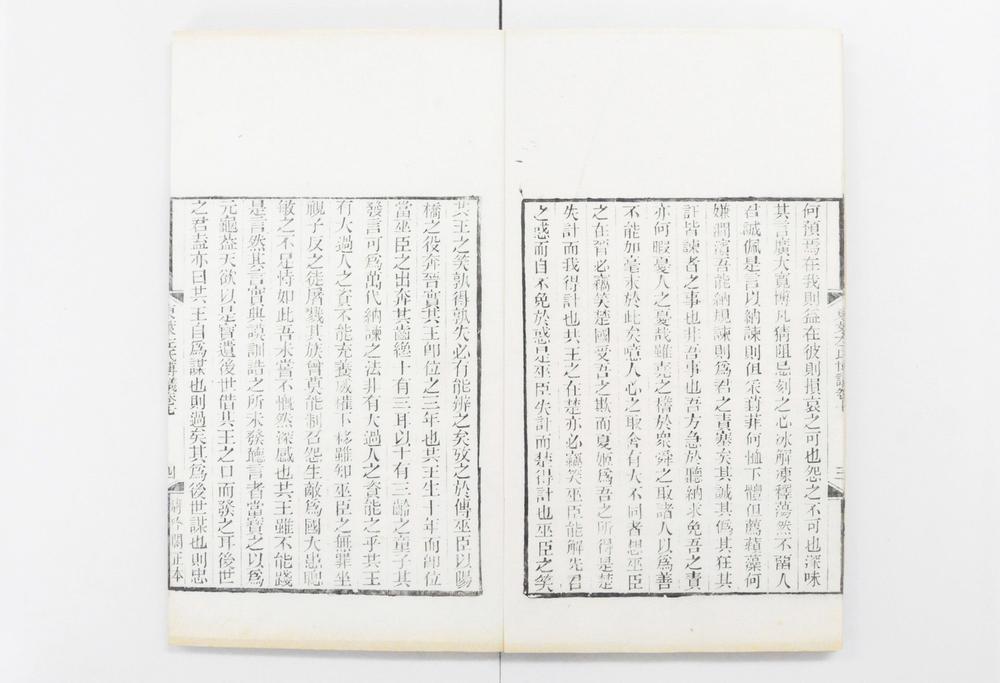 何預焉在我則益在彼則損哀之可也怨之不可也深味
其言廣大寬博凡猜阻忌刻之心冰解凍釋蕩然不留人
君誠佩是言以納諫則但采葑菲何恤下體但薦蘋藻何
嫌澗濱吾能納規諫則爲君之責塞矣其誠其僞其狂其
訐皆諫者之事也非吾事也吾方急於聽納求免吾之責
亦何暇憂人之憂哉雖堯之稽於衆舜之取諸人以爲善
不能如毫末於此矣噫人心之取舍有大不同者想巫臣
之在晉必竊笑楚國受吾之欺而夏姬爲吾之所得是楚
失計而我得計也共王之在楚亦必竊笑巫臣能解先君
之惑而自不免於惑是巫臣失計而楚得計也巫臣之笑
共王之笑孰得孰失必有能辨之矣攷之於傳巫臣以陽
橋之役奔晉實共王卽位之三年也共王生十年而卽位
當巫臣之出奔其齒纔十有三耳以十有三齡之童子其
發言可爲萬代納諫之法非有大過人之資能之乎共王
有大過人之資不能充養威權下移雖知巫臣之無罪坐
視子反之徒屠戮其族曾莫能制召怨生敵爲國大患聰
敏之不足恃如此吾未嘗不慨然深感也共王雖不能踐
是言然其言實典謨訓誥之所未發聽言者當寶之以爲
元龜蓋天欲以是寶遺後世借共王之口而發之耳後世
之君盍亦曰共王自爲謀也則過矣其爲後世謀也則忠
四